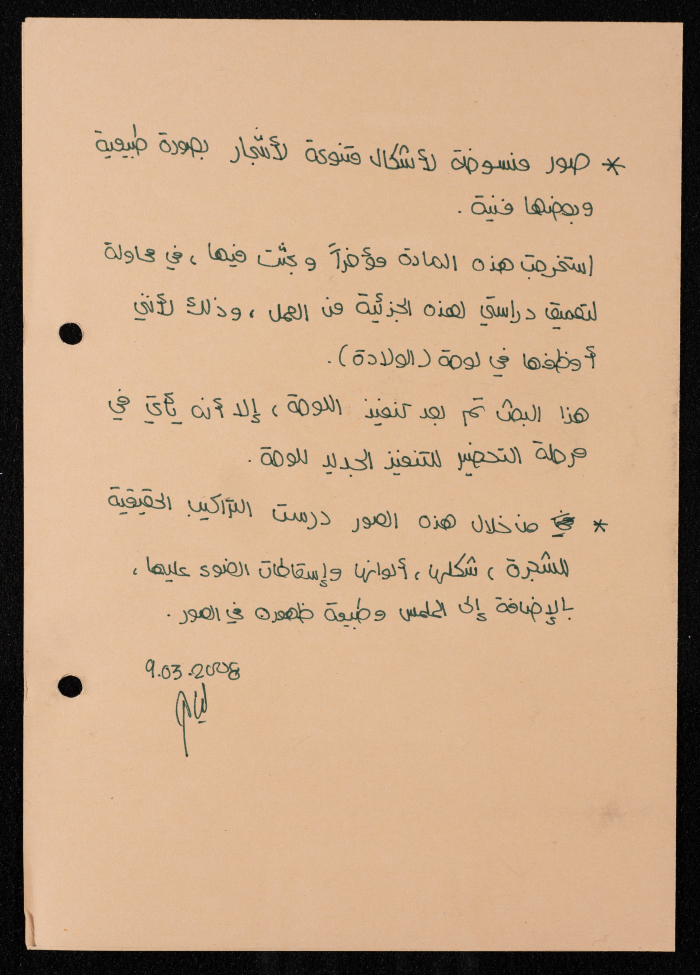 * صور منسوخة لأشكال متنوعة لأشجار بصورة طبيعية
وبعضها فنية .
استخرجت هذه المادة مؤخراً وبحثت فيها ، في محاولة
لتعميق دراستي لهذه الجزئية من العمل ، وذلك لأنني
أوظفها في لوحة (الولادة) .
هذا البحث تم بعد تنفيذ اللوحة ، إلا أنه يأتي في
مرحلة التحضير للتنفيذ الجديد للوحة .
* من خلال هذه الصور درست التراكيب الحقيقية
للشجرة ، شكلها ، ألوانها وإسقاطات الضوء عليها ،
بالإضافة إلى الملمس وطبيعة ظهوره في الصور .
9.03.2008